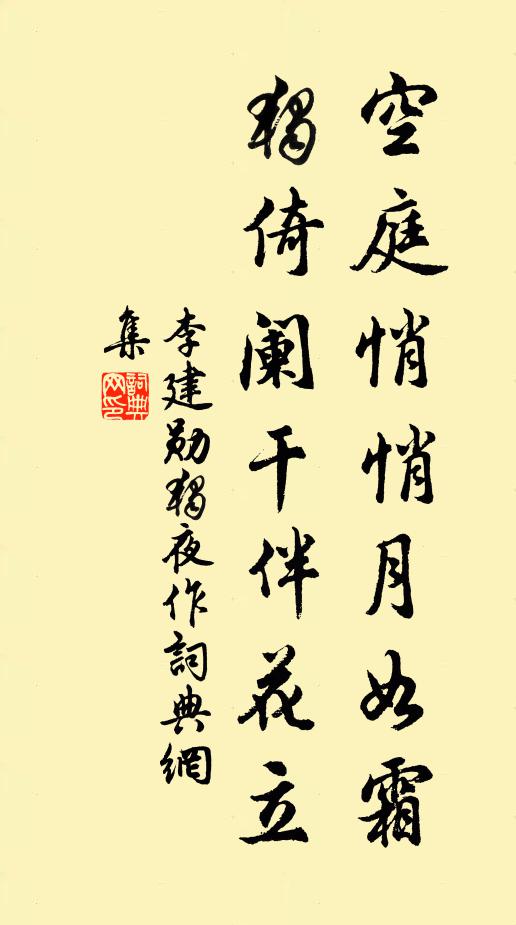 空庭悄悄月如霜
獨倚阑干伴花立
李建勋獨夜作詞典網
集
詞典
网印